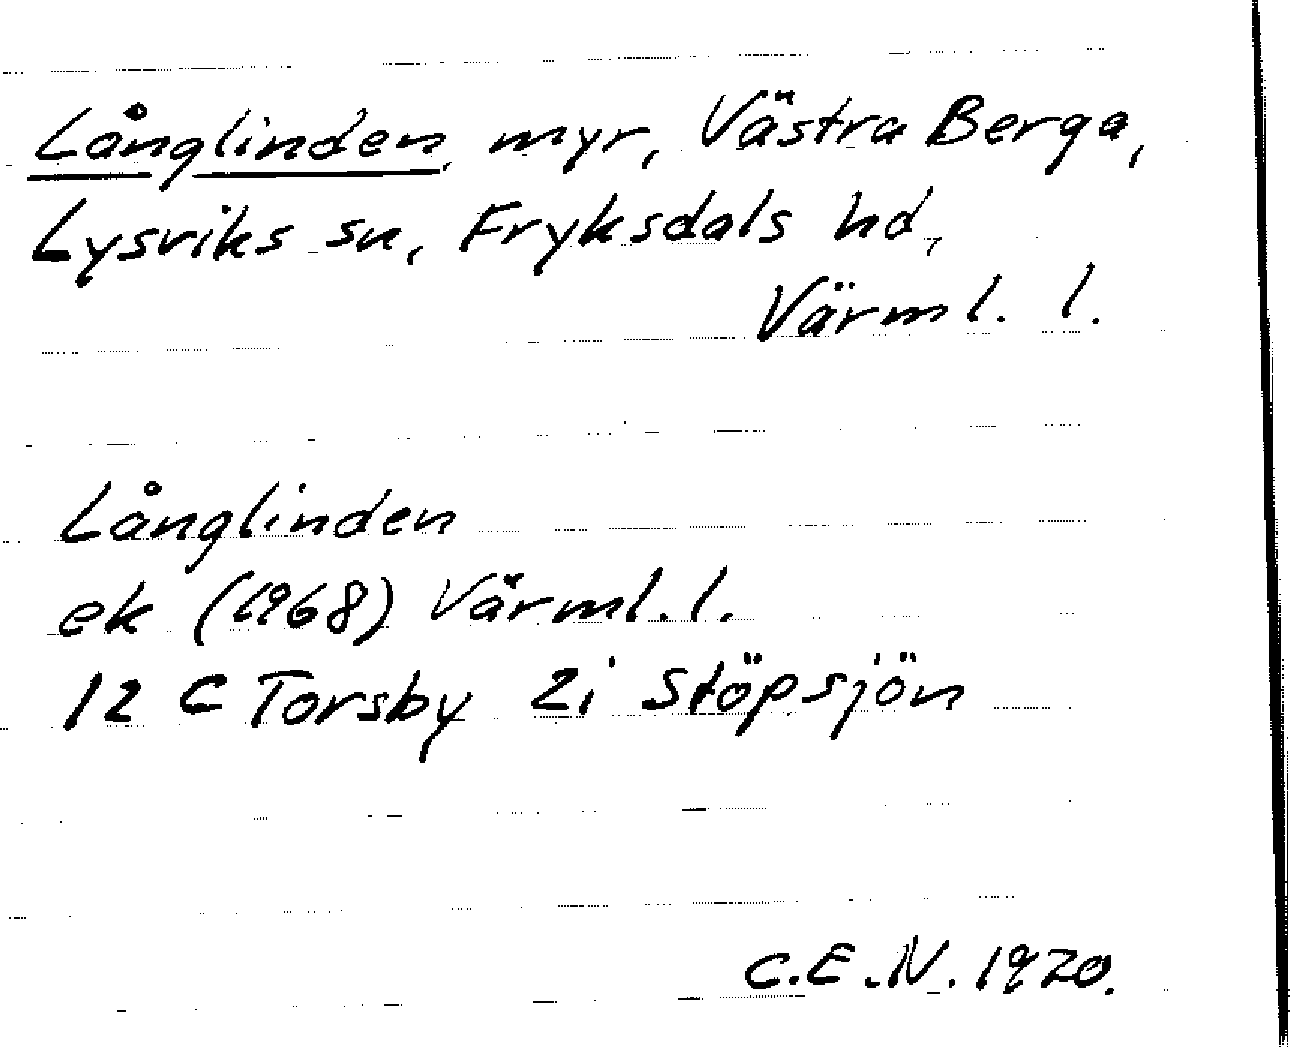 Långlinden, myr, Västra Berga,
Lysviks sn, Fryksdals hd,
Värml. l.
Långlinden
ek (1968) Värml. l.
12 C Torsby 2i Stöpsjön
C.E.N. 1970.